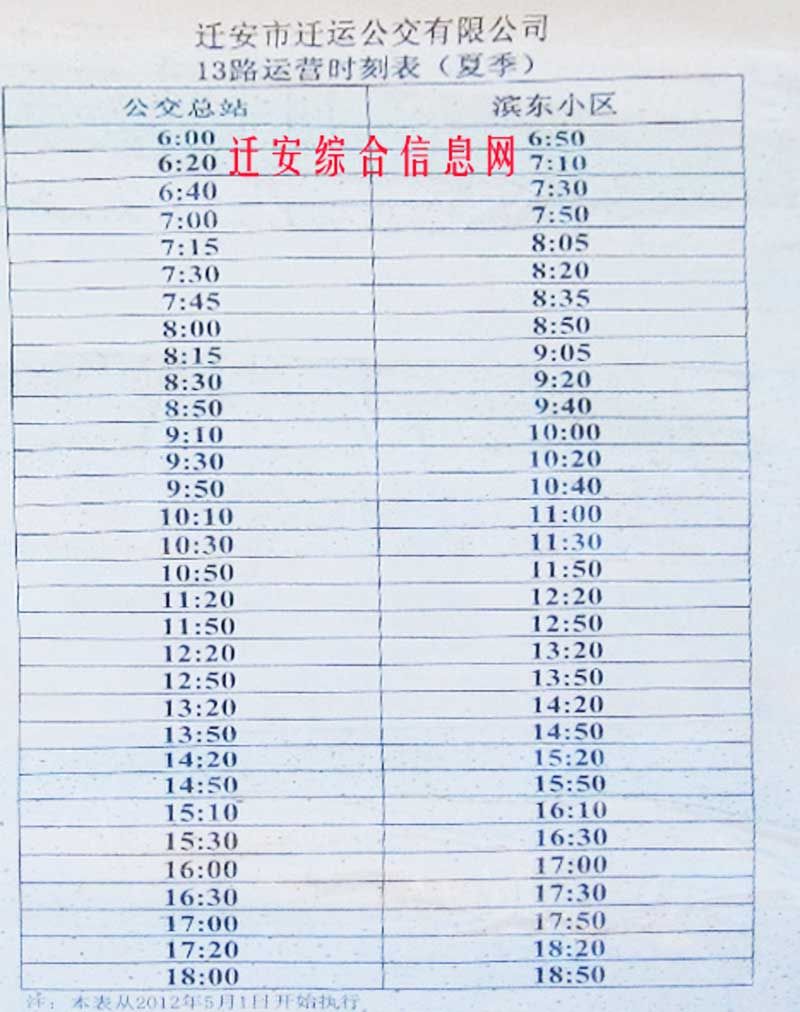 迁安市迁运公交有限公司
13路运营时刻表（夏季）
公交总站 滨东小区
6:00 6:50
迁安综合信息网
6:20 7:10
6:40 7:30
7:00 7:50
7:15 8:05
7:30 8:20
7:45 8:35
8:00 8:50
8:15 9:05
8:30 9:20
8:50 9:40
9:10 10:00
9:30 10:20
9:50 10:40
10:10 11:00
10:30 11:30
10:50 11:50
11:20 12:20
11:50 12:50
12:20 13:20
12:50 13:50
13:20 14:20
13:50 14:50
14:20 15:20
14:50 15:50
15:10 16:10
15:30 16:30
16:00 17:00
16:30 17:30
17:00 17:50
17:20 18:20
18:00 18:50
注：本表从2012年5月1日开始执行